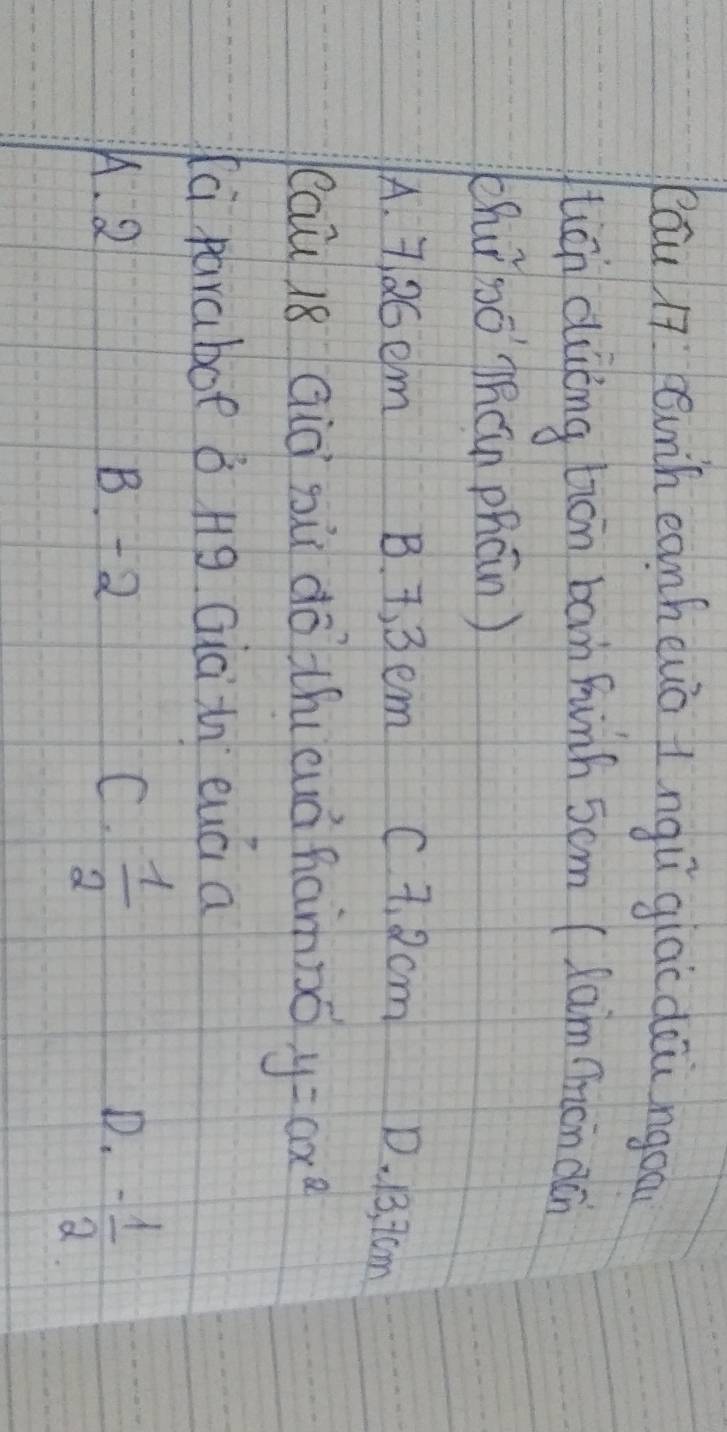 Câu 17: Tính cạnh của 1 ngũ giác đều ngoại
tiếp đường tròn bán kính 5cm (làm tròn đến
chữ số thập phân)
A. 7,26cm B. 7,3cm C 7,2cm D. 13,7cm
Câu 18 Giả sử đồ thị của hàm số y = ax²
là parabol ở H9. Giá trị của a
A. 2 B. -2 C. 1/2 D. -1/2